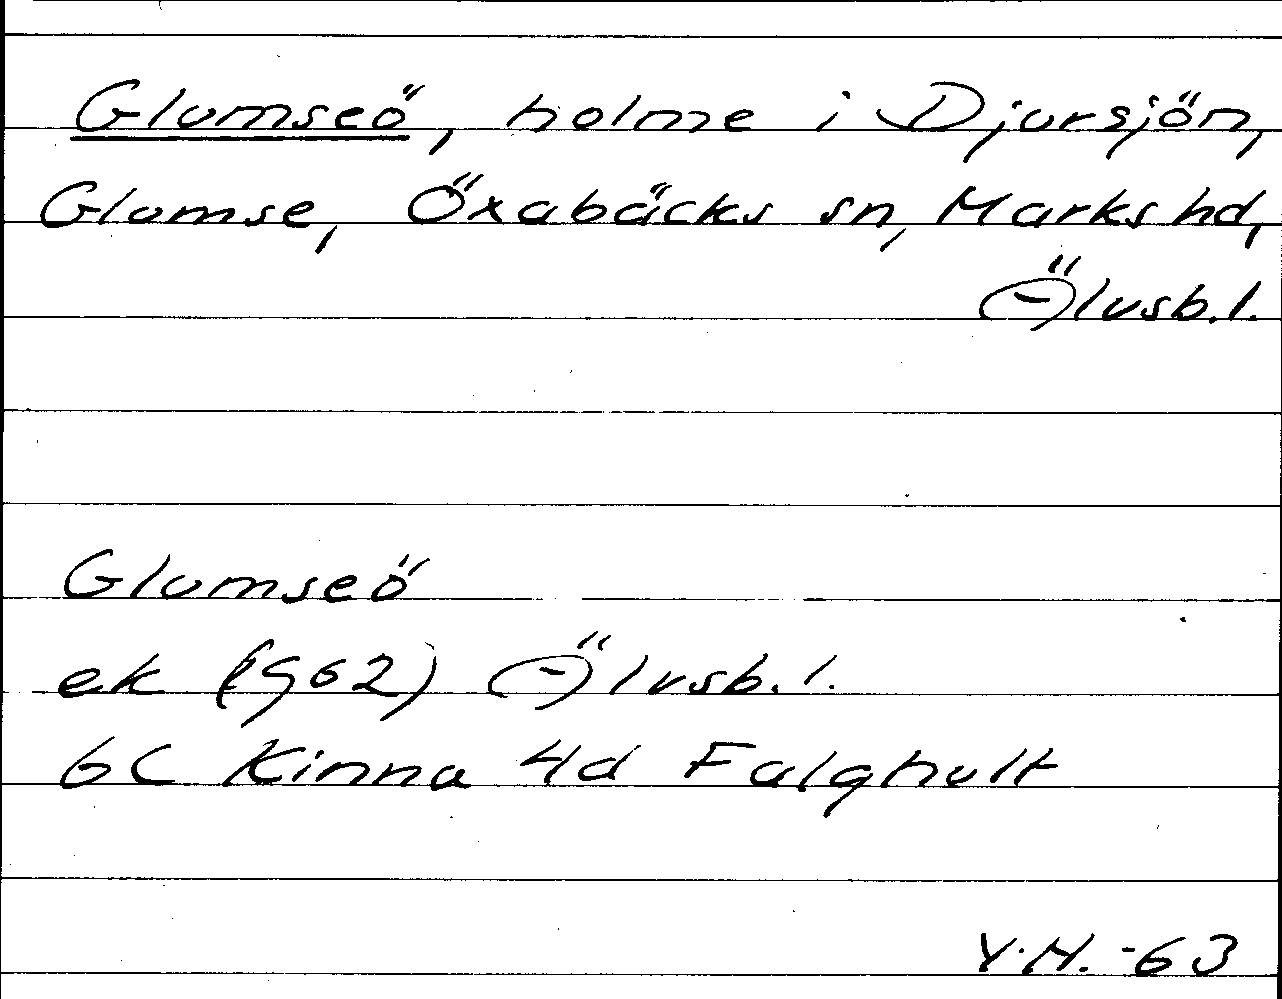 Glumseö, holme i Djursjön,
Glumse, Öxabäcks sn, Marks hd,
Älvsb. l.
Glumseö
ek (1962) Älvsb. l.
6C Kinna 4d Falghult
Y.H. -63